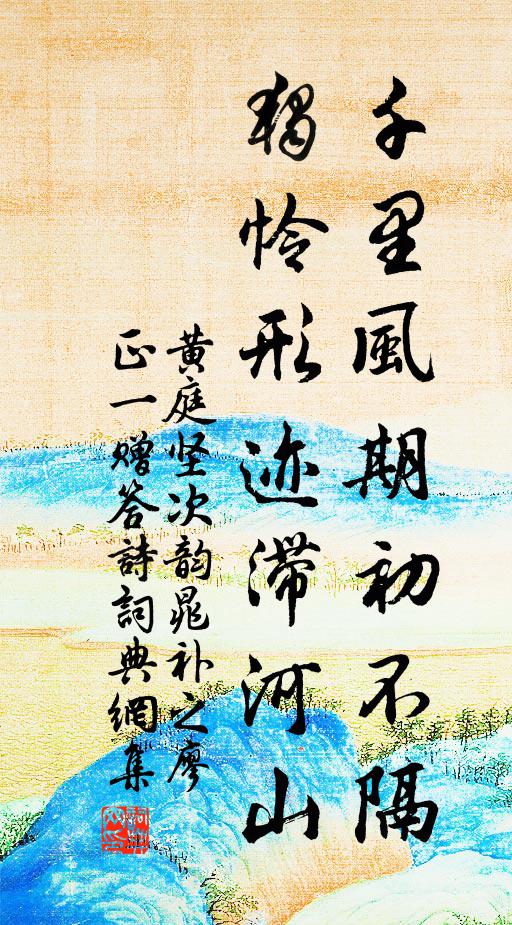 千里風期初不隔
獨怜形迹滞河山
黄庭坚次韵晁补之廖
正一赠答詩詞典網集